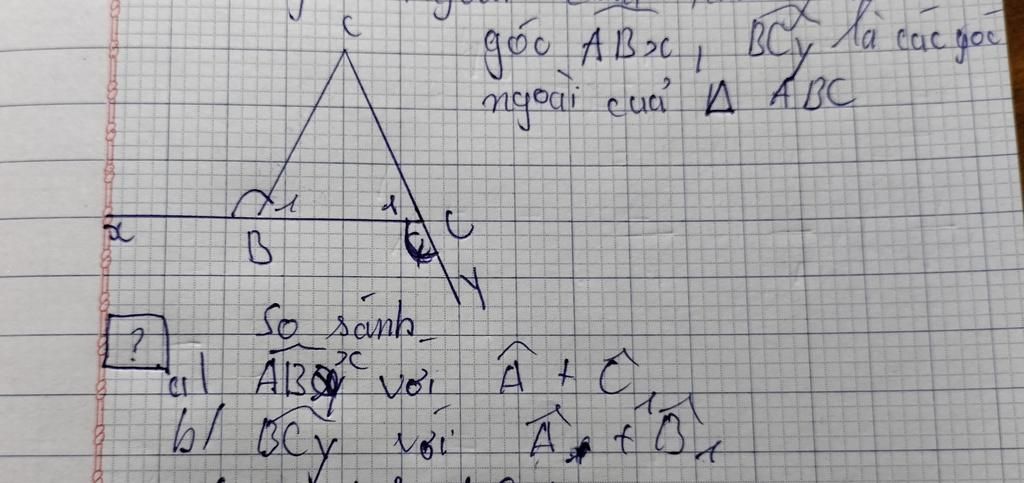 C
góc ABx, BCy là các góc
ngoài của Δ ABC
1 1
x B C
y
? So sánh
a/ ABx với Â + Ĉ1
b/ BCy với Â + B̂1